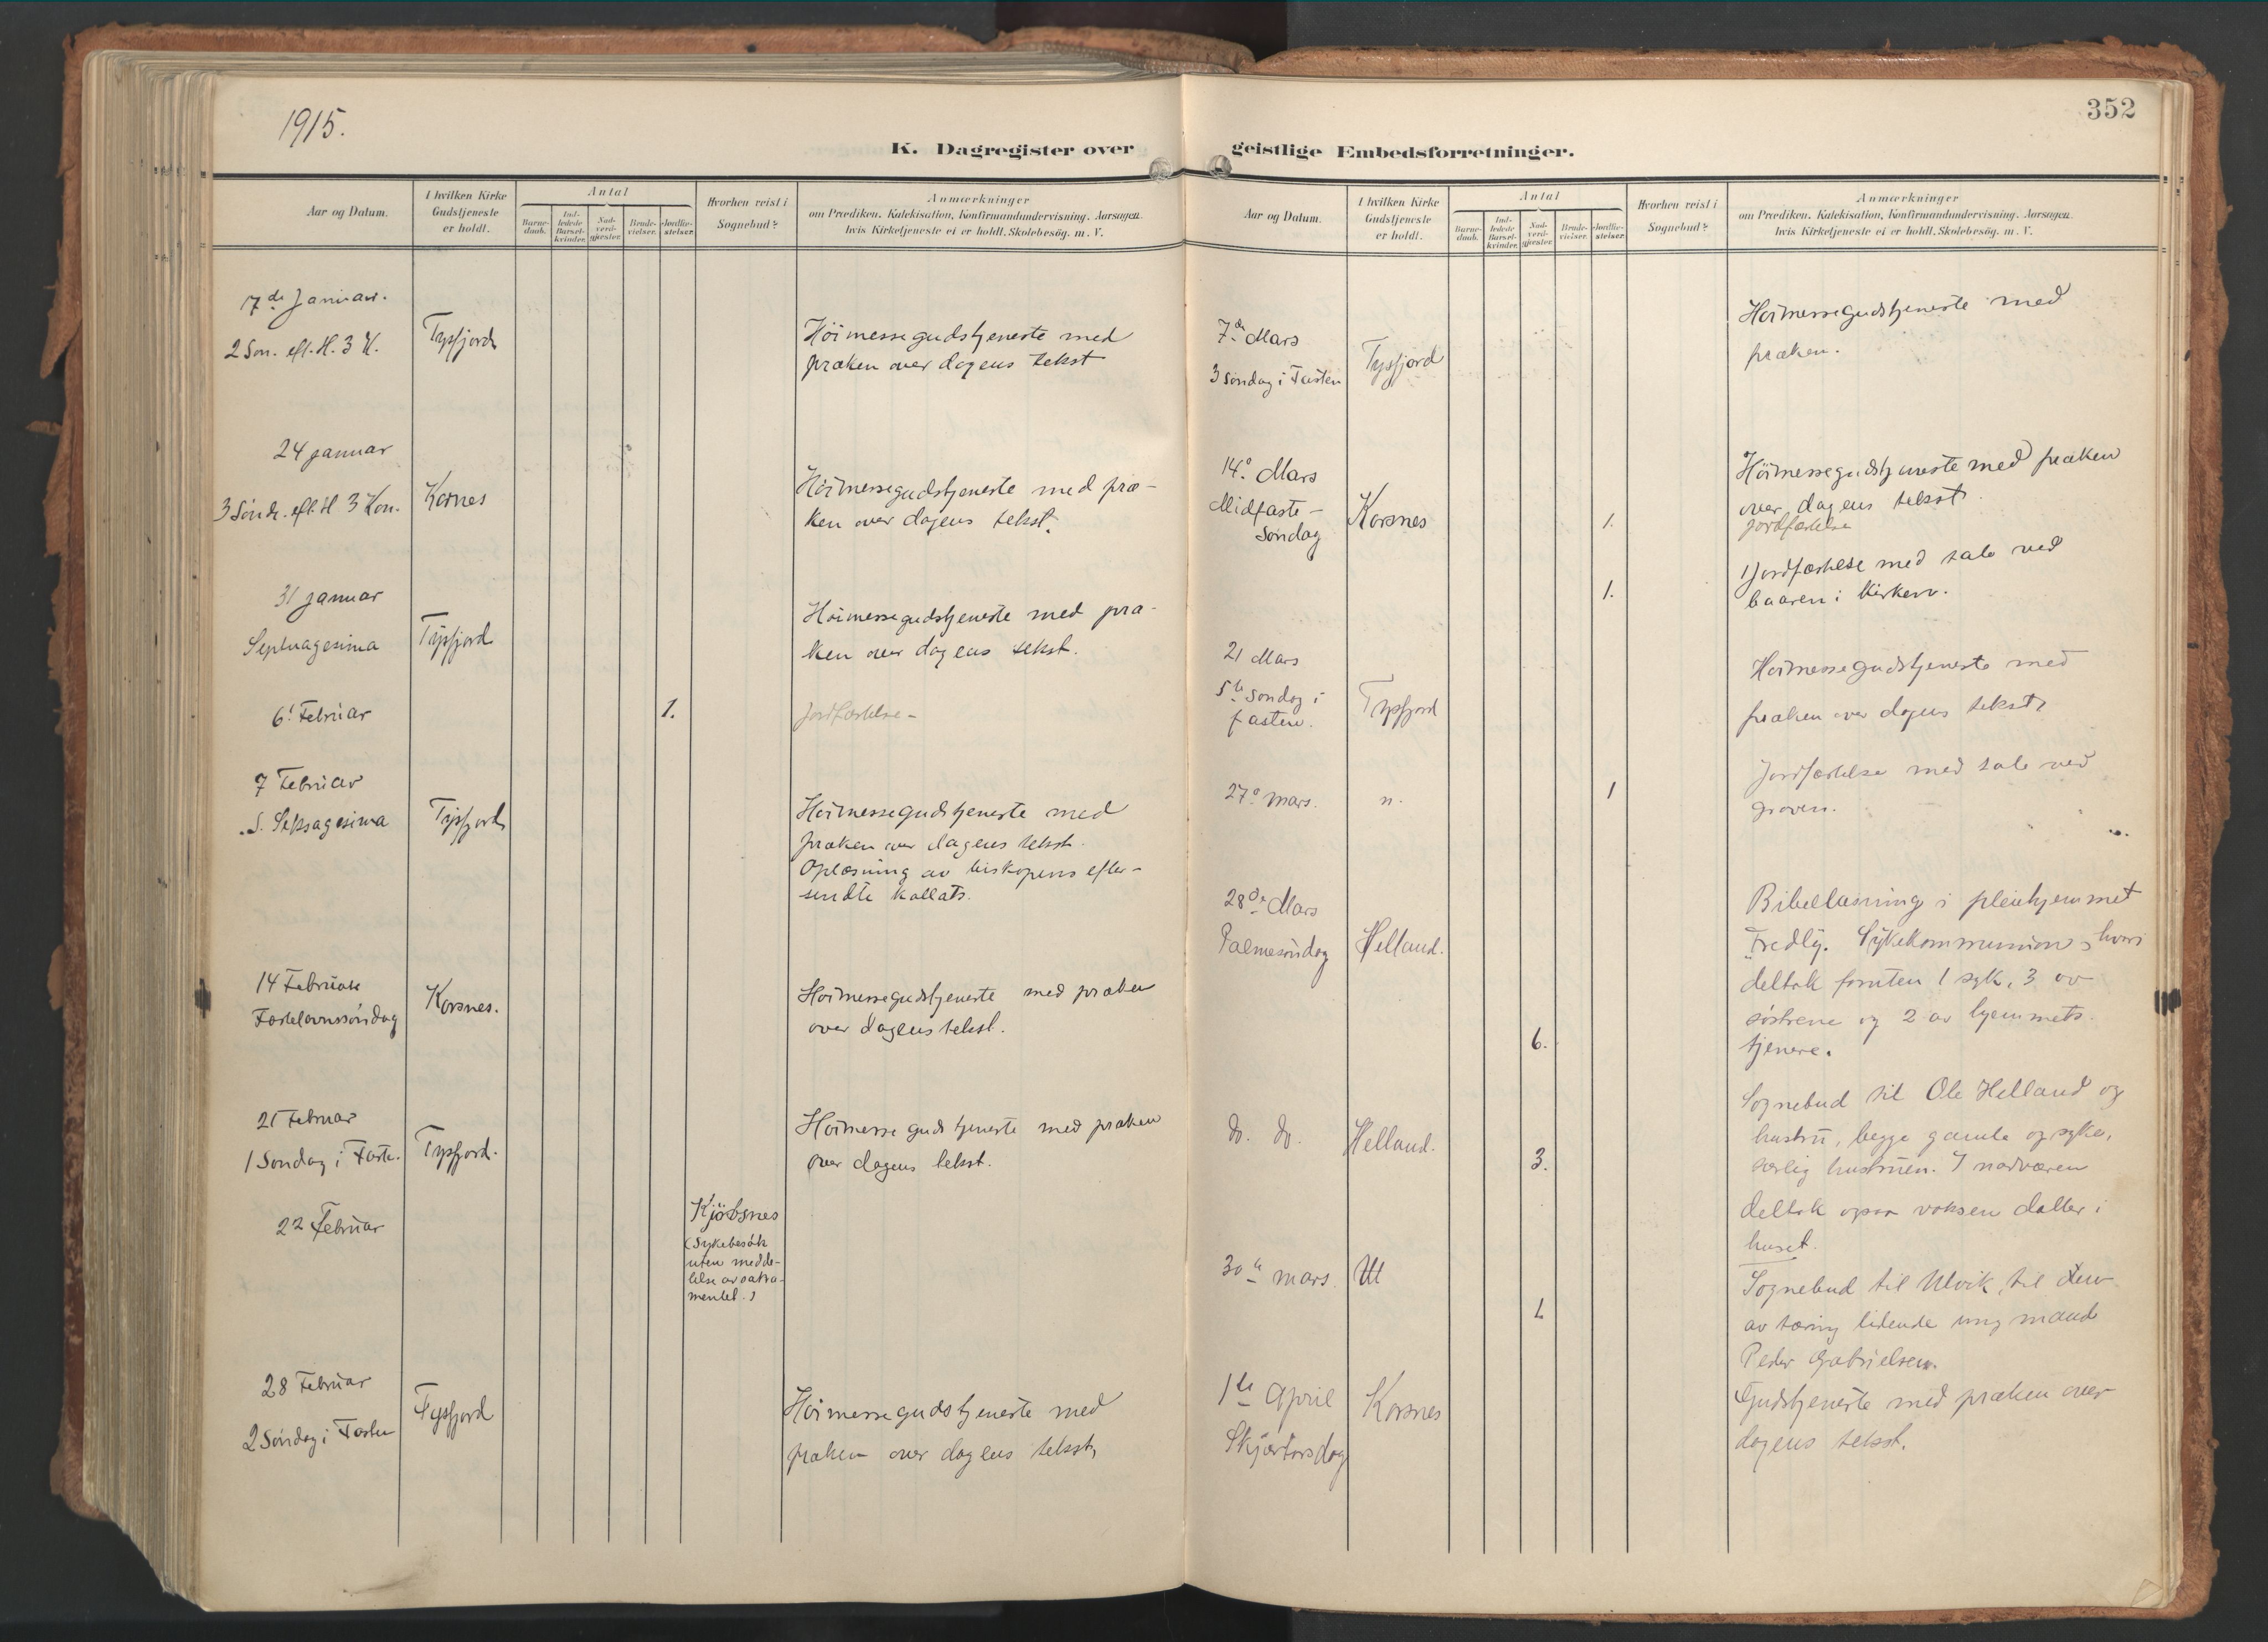 1915.
K. Dagregister over
Aar og Datum.
I hvilken Kirke
Gudstjeneste
er holdt.
Antal
Barne-
daab.
Ind-
ledede
Barsel-
kvinder.
Nad-
verd-
gjæster.
Brude-
vielser.
Jordfæ-
stelser.
Hvorhen reist i
Sognebud?
Anmærkninger
om Prædiken. Katekisation, Konfirmandundervisning. Aarsagen.
hvis Kirketjeneste ei er holdt. Skolebesøg. m. V.
7de Januar.
2 Søn. eft. H. 3 K.
Tysfjord
Höimessegudstjeneste med
præken over dagens tekst
24 januar
3 Sönd. eft. H 3 Kon.
Korsnes
Höimessegudstjeneste med præ-
ken over dagens tekst.
31 januar
Septuagesima
Tysfjord
Höimessegudstjeneste med præ-
ken over dagens tekst.
6' Februar
1.
Jordfæstelse -
7 Februar
S. Seksagesima
Tysfjord
Höimessegudstjeneste med
præken over dagens tekst.
Oplæsning av biskopens efter-
sendte kollats.
14 Februar
Fastelavnssöndag
Korsnes.
Höimessegudstjeneste med præken
over dagens tekst.
21 Februar
1 Söndag i Faste.
Tysfjord.
Höimessegudstjeneste med præken
over dagens tekst.
22 Februar
Kjöbsnes
(Sykebesök
uten medde-
lelse av sakra-
mentet.)
28 Februar
2 Söndag i Fasten
Tysfjord
Höimessegudstjeneste med
præken over dagens tekst,
352
geistlige Embedsforretninger.
Aar og Datum.
I hvilken Kirke
Gudstjeneste
er holdt.
Antal
Barne-
daab.
Ind-
ledede
Barsel-
kvinder.
Nad-
verd-
gjæster.
Brude-
vielser.
Jordfæ-
stelser.
Hvorhen reist i
Sognebud?
Anmærkninger
om Prædiken. Katekisation, Konfirmandundervisning. Aarsagen.
hvis Kirketjeneste ei er holdt. Skolebesøg. m. V.
7de Mars
3 Söndag i Fasten
Tysfjord
Höimessegudstjeneste med
præken.
14de Mars
Midfaste-
Söndag
Korsnes
1.
Höimessegudstjeneste med præken
over dagens tekst.
Jordfæstelse
1.
1 Jordfæstelse med tale ved
baaren i kirken.
21 Mars
5te Söndag i
fasten.
Tysfjord
Höimessegudstjeneste med
præken over dagens tekst,
27de mars.
n.
1
Jordfæstelse med tale ved
graven.
28de Mars
Palmesöndag
Helland.
6.
Bibellæsning i pleiehjemmet
Fredly. Sykekommunion, hvori
deltok foruten 1 syk, 3 av
söstrene og 2 av hjemmets
tjenere.
do. do.
Helland.
3.
Sognebud til Ole Helland og
hustru, begge gamle og syke,
særlig hustruen. I nadværen
deltok ogsaa voksen datter i
huset.
30te mars.
Ul
1.
Sognebud til Ulvik, til den
av tæring lidende ung mand
Peder Gabrielsen.
1te April
Skjærtorsdag
Korsnes
Gudstjeneste med præken over
dagens tekst.